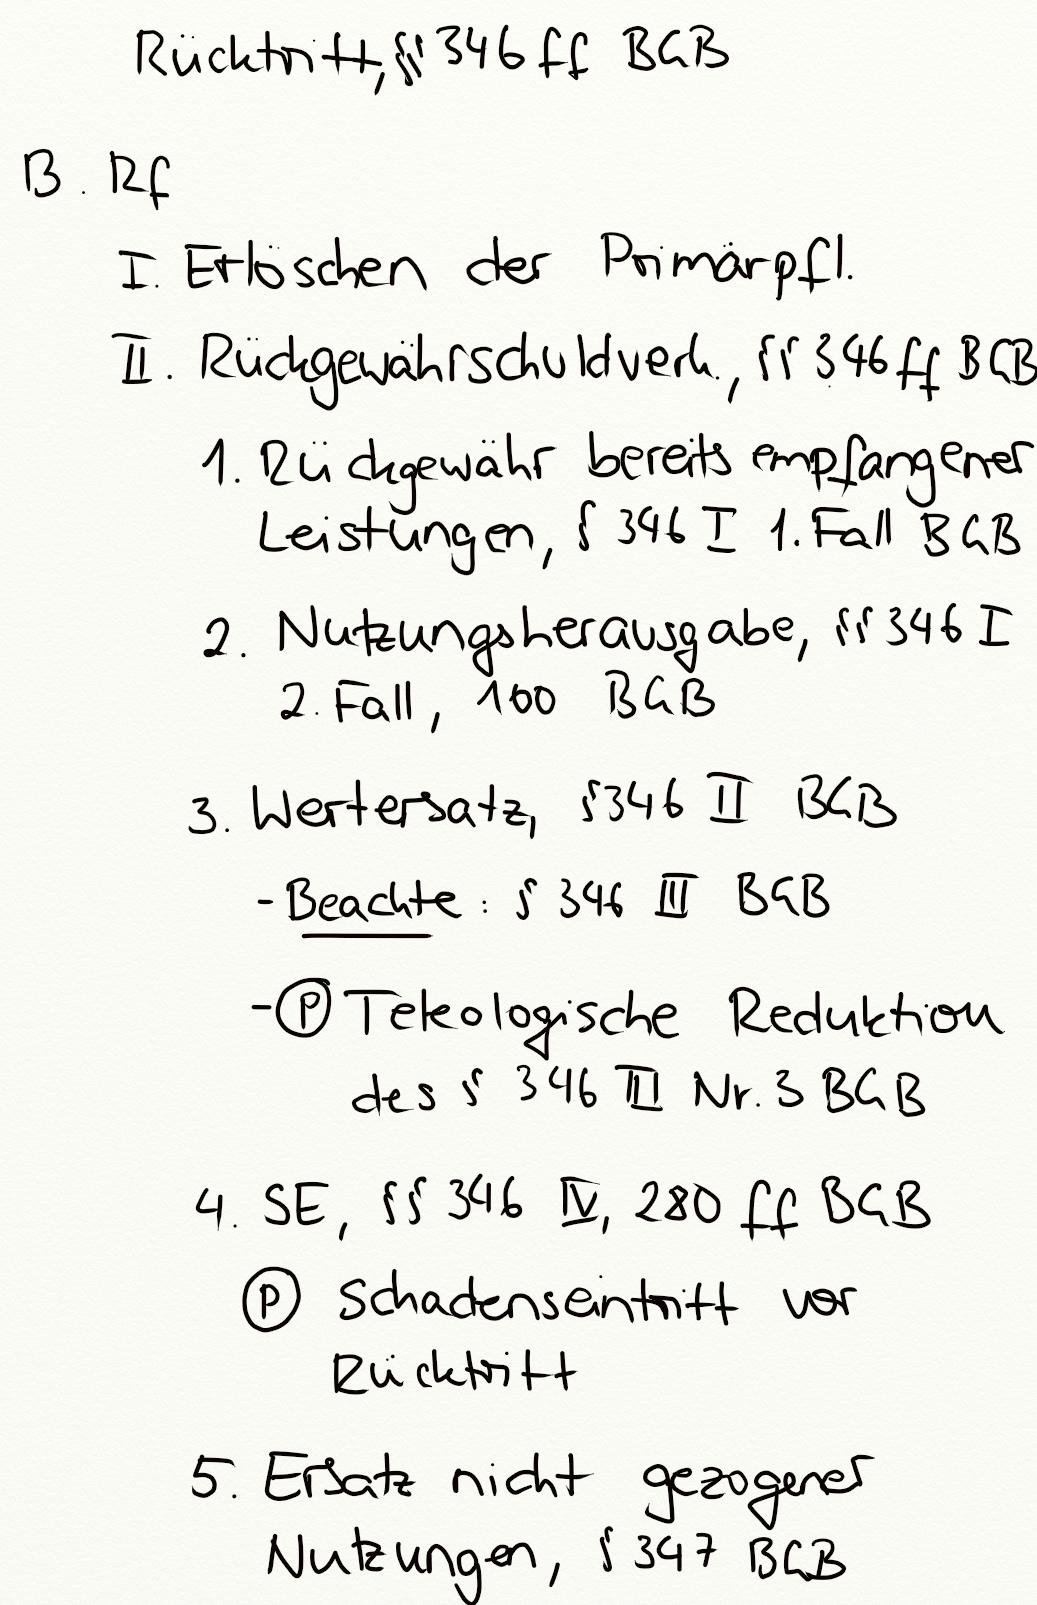 Rücktritt, §§ 346 ff BGB
B. Rf
I. Erlöschen der Primärpfl.
II. Rückgewährschuldverh., §§ 346 ff BGB
1. Rückgewähr bereits empfangener
Leistungen, § 346 I 1. Fall BGB
2. Nutzungsherausgabe, §§ 346 I
2. Fall, 100 BGB
3. Wertersatz, § 346 II BGB
- Beachte: § 346 III BGB
- (P) Teleologische Reduktion
des § 346 III Nr. 3 BGB
4. SE, §§ 346 IV, 280 ff BGB
(P) Schadenseintritt vor
Rücktritt
5. Ersatz nicht gezogener
Nutzungen, § 347 BGB